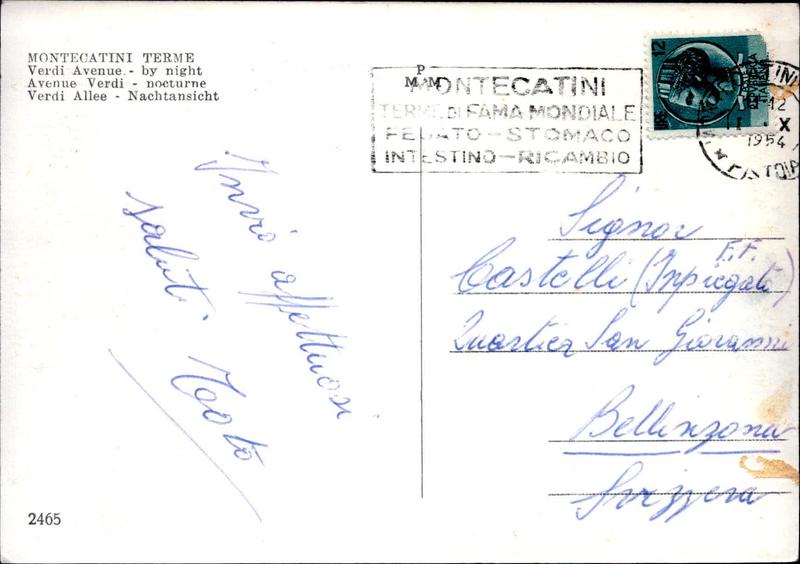 MONTECATINI TERME
Verdi Avenue - by night
Avenue Verdi - nocturne
Verdi Allee - Nachtansicht
P
M M
MONTECATINI
TERME DI FAMA MONDIALE
FEGATO - STOMACO
INTESTINO - RICAMBIO
12
1954
PISTOIA
Invio affettuosi
saluti
Signor
F.F.
Castelli (Inpiegato)
Quartier San Giovanni
Bellinzona
Svizzera
2465